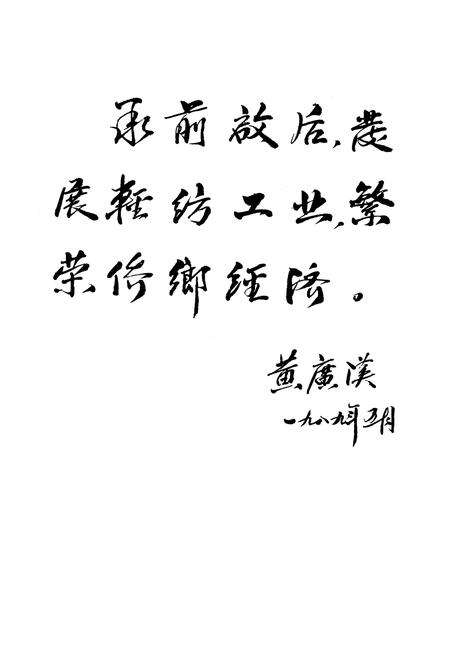 承前啟后，發
展輕纺工业，繁
荣侨鄉經济。
黄廣漢
一九八九年五月